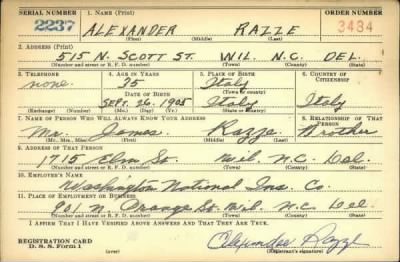 SERIAL NUMBER 1. NAME (Print) ORDER NUMBER
2237 ALEXANDER RAZZE 3434
(First) (Middle) (Last)
2. ADDRESS (Print)
515 N. SCOTT ST. WIL. N.C. DEL.
(Number and street or R. F. D. number) (Town) (County) (State)
3. TELEPHONE 4. AGE IN YEARS 5. PLACE OF BIRTH 6. COUNTRY OF CITIZENSHIP
none 35 Italy
DATE OF BIRTH (Town or county)
SEPT. 26. 1905 Italy Italy
(Exchange) (Number) (Mo.) (Day) (Yr.) (State or country)
7. NAME OF PERSON WHO WILL ALWAYS KNOW YOUR ADDRESS 8. RELATIONSHIP OF THAT PERSON
Mr. James Razze Brother
(Mr., Mrs., Miss) (First) (Middle) (Last)
9. ADDRESS OF THAT PERSON
1715 Elm St. Wil. N.C. Del.
(Number and street or R. F. D. number) (Town) (County) (State)
10. EMPLOYER'S NAME
Washington National Ins. Co.
11. PLACE OF EMPLOYMENT OR BUSINESS
901 N. Orange St. Wil. N.C. Del.
(Number and street or R. F. D. number) (Town) (County) (State)
I AFFIRM THAT I HAVE VERIFIED ABOVE ANSWERS AND THAT THEY ARE TRUE.
REGISTRATION CARD
D. S. S. Form 1 (over) Alexander Razze
(Registrant's signature)